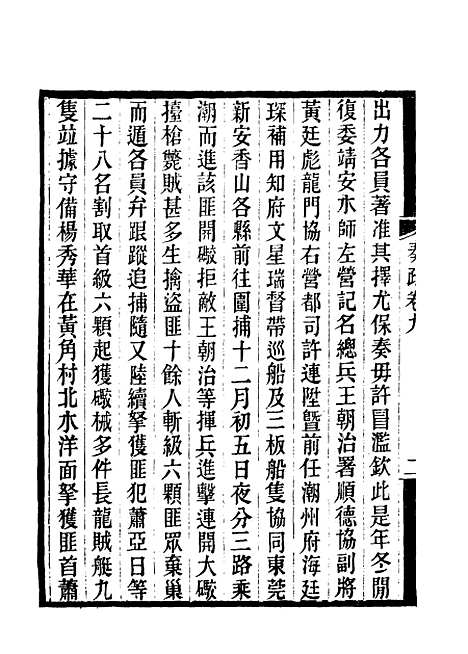 出力各員著准其擇尤保奏毋許冒濫欽此是年冬間
復委靖安水師左營記名總兵王朝治署順德協副將
黃廷彪龍門協右營都司許連陞暨前任潮州府海廷
琛補用知府文星瑞督帶巡船及三板船隻協同東莞
新安香山各縣前往圍捕十二月初五日夜分三路乘
潮而進該匪開礮拒敵王朝治等揮兵進擊連開大礮
擡槍斃賊甚多生擒盜匪十餘人斬級六顆匪眾棄巢
而遁各員弁跟蹤追捕隨又陸續拏獲匪犯蕭亞日等
二十八名割取首級六顆起獲礮械多件長龍賊艇九
隻竝據守備楊秀華在黃角村北水洋面拏獲匪首蕭
奏疏卷九
二